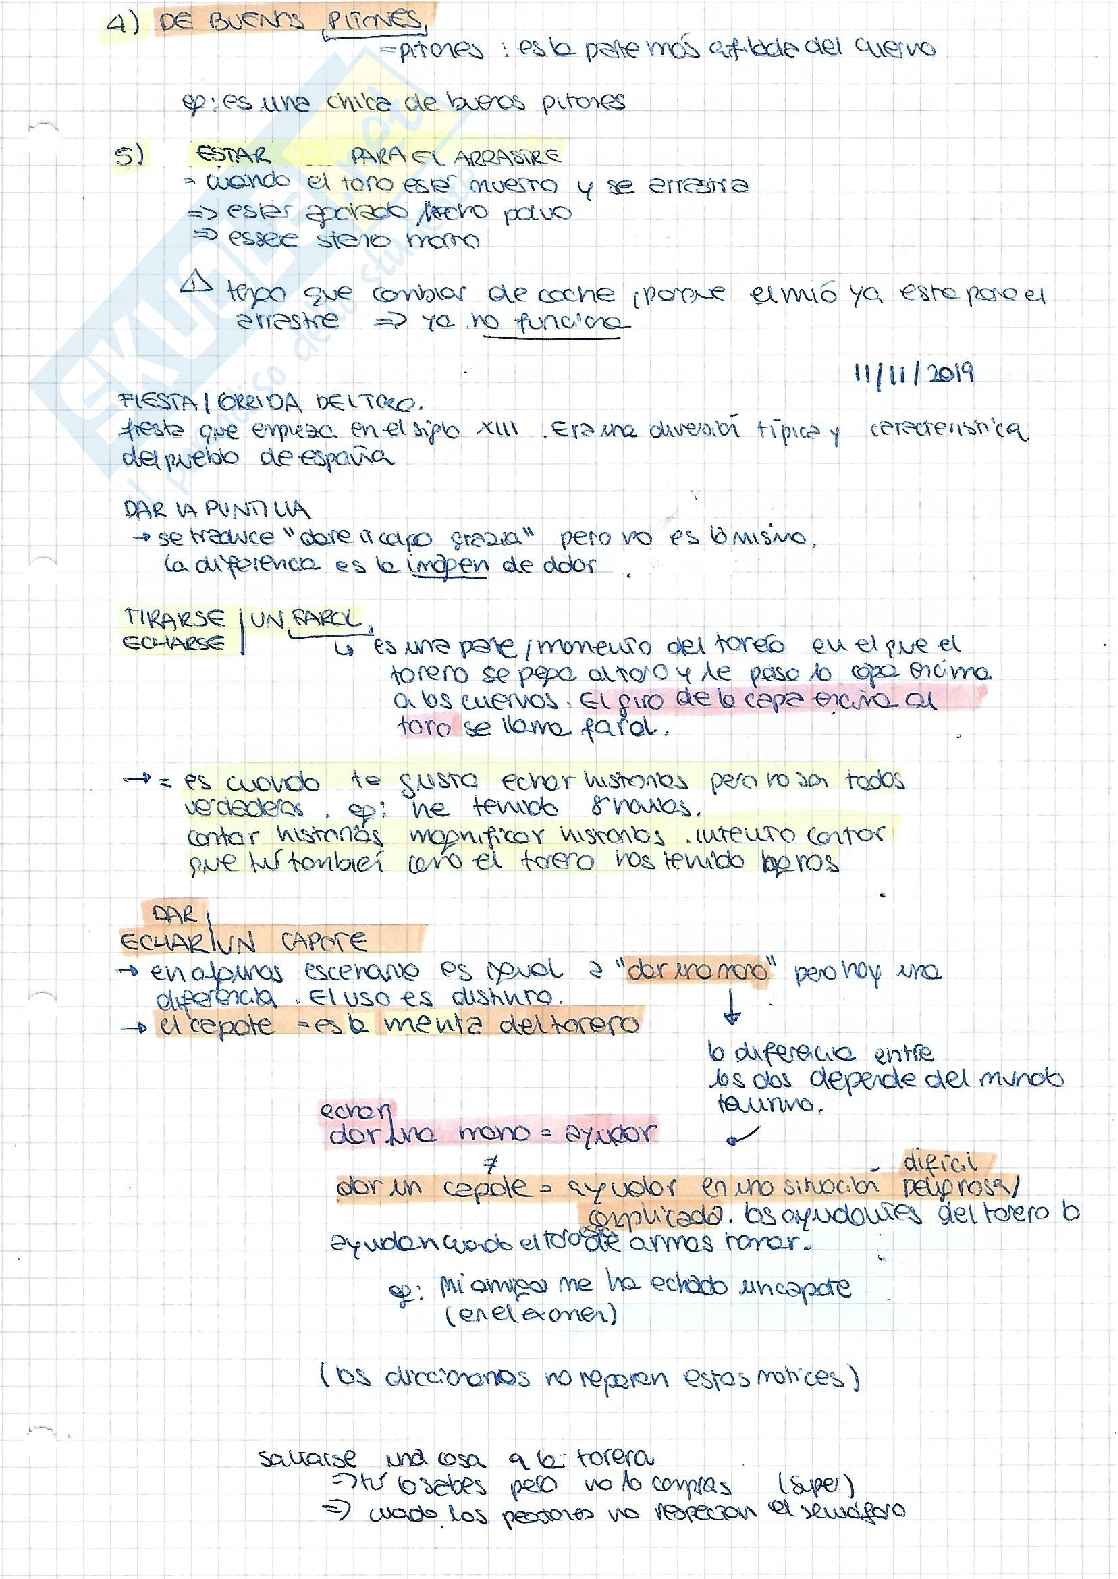 4) DE BUENOS PITONES,
=pitones : es la parte más afilada del cuerno
ej: es una chica de buenos pitones
5) ESTAR PARA EL ARRASTRE
= cuando el toro está muerto y se arrastra
=> estar agotado/hecho polvo
=> essere stanco morto
⚠ tengo que cambiar de coche, porque el mió ya esta para el
arrastre => ya no funciona
11/11/2019
FIESTA/CORRIDA DEL TORO.
fiesta que empieza en el siglo XIII. Era una diversión típica y característica
del pueblo de españa
DAR LA PUNTILLA
→ se traduce "dare il colpo grazia" pero no es lo mismo,
la diferencia es la imagen de dolor.
TIRARSE/ UN FAROL,
ECHARSE
↳ es una parte/momento del toreo en el que el
torero se pega al toro y le pasa la capa encima
a los cuernos. El giro de la capa encima al
toro se llama farol.
→ = es cuando te gusta echar historias pero no son todas
verdaderas. ej: he tenido 8 novios.
contar historias magnificar historias. intento contar
que tú también como el torero has tenido
DAR/
ECHAR/UN CAPOTE
→ en algunos escenario es igual a "dar una mano" pero hay una
diferencia. El uso es distinto.
→ el capote = es la manta del torero
↓
la diferencia entre
los dos depende del mundo
taurino.
echar/
dar una mano = ayudar
≠
dar un capote = ayudar en una situación peligrosa/ difícil
complicada. los ayudantes del torero lo
ayudan cuando el toro
ej: Mi amiga me ha echado un capote
(en el examen)
(los diccionarios no reparan estos matices)
saltarse una cosa a la torera
=> tú lo sabes pero no lo compras (super)
=> cuado los peatones no respectan el semáforo
SKUOLA.net